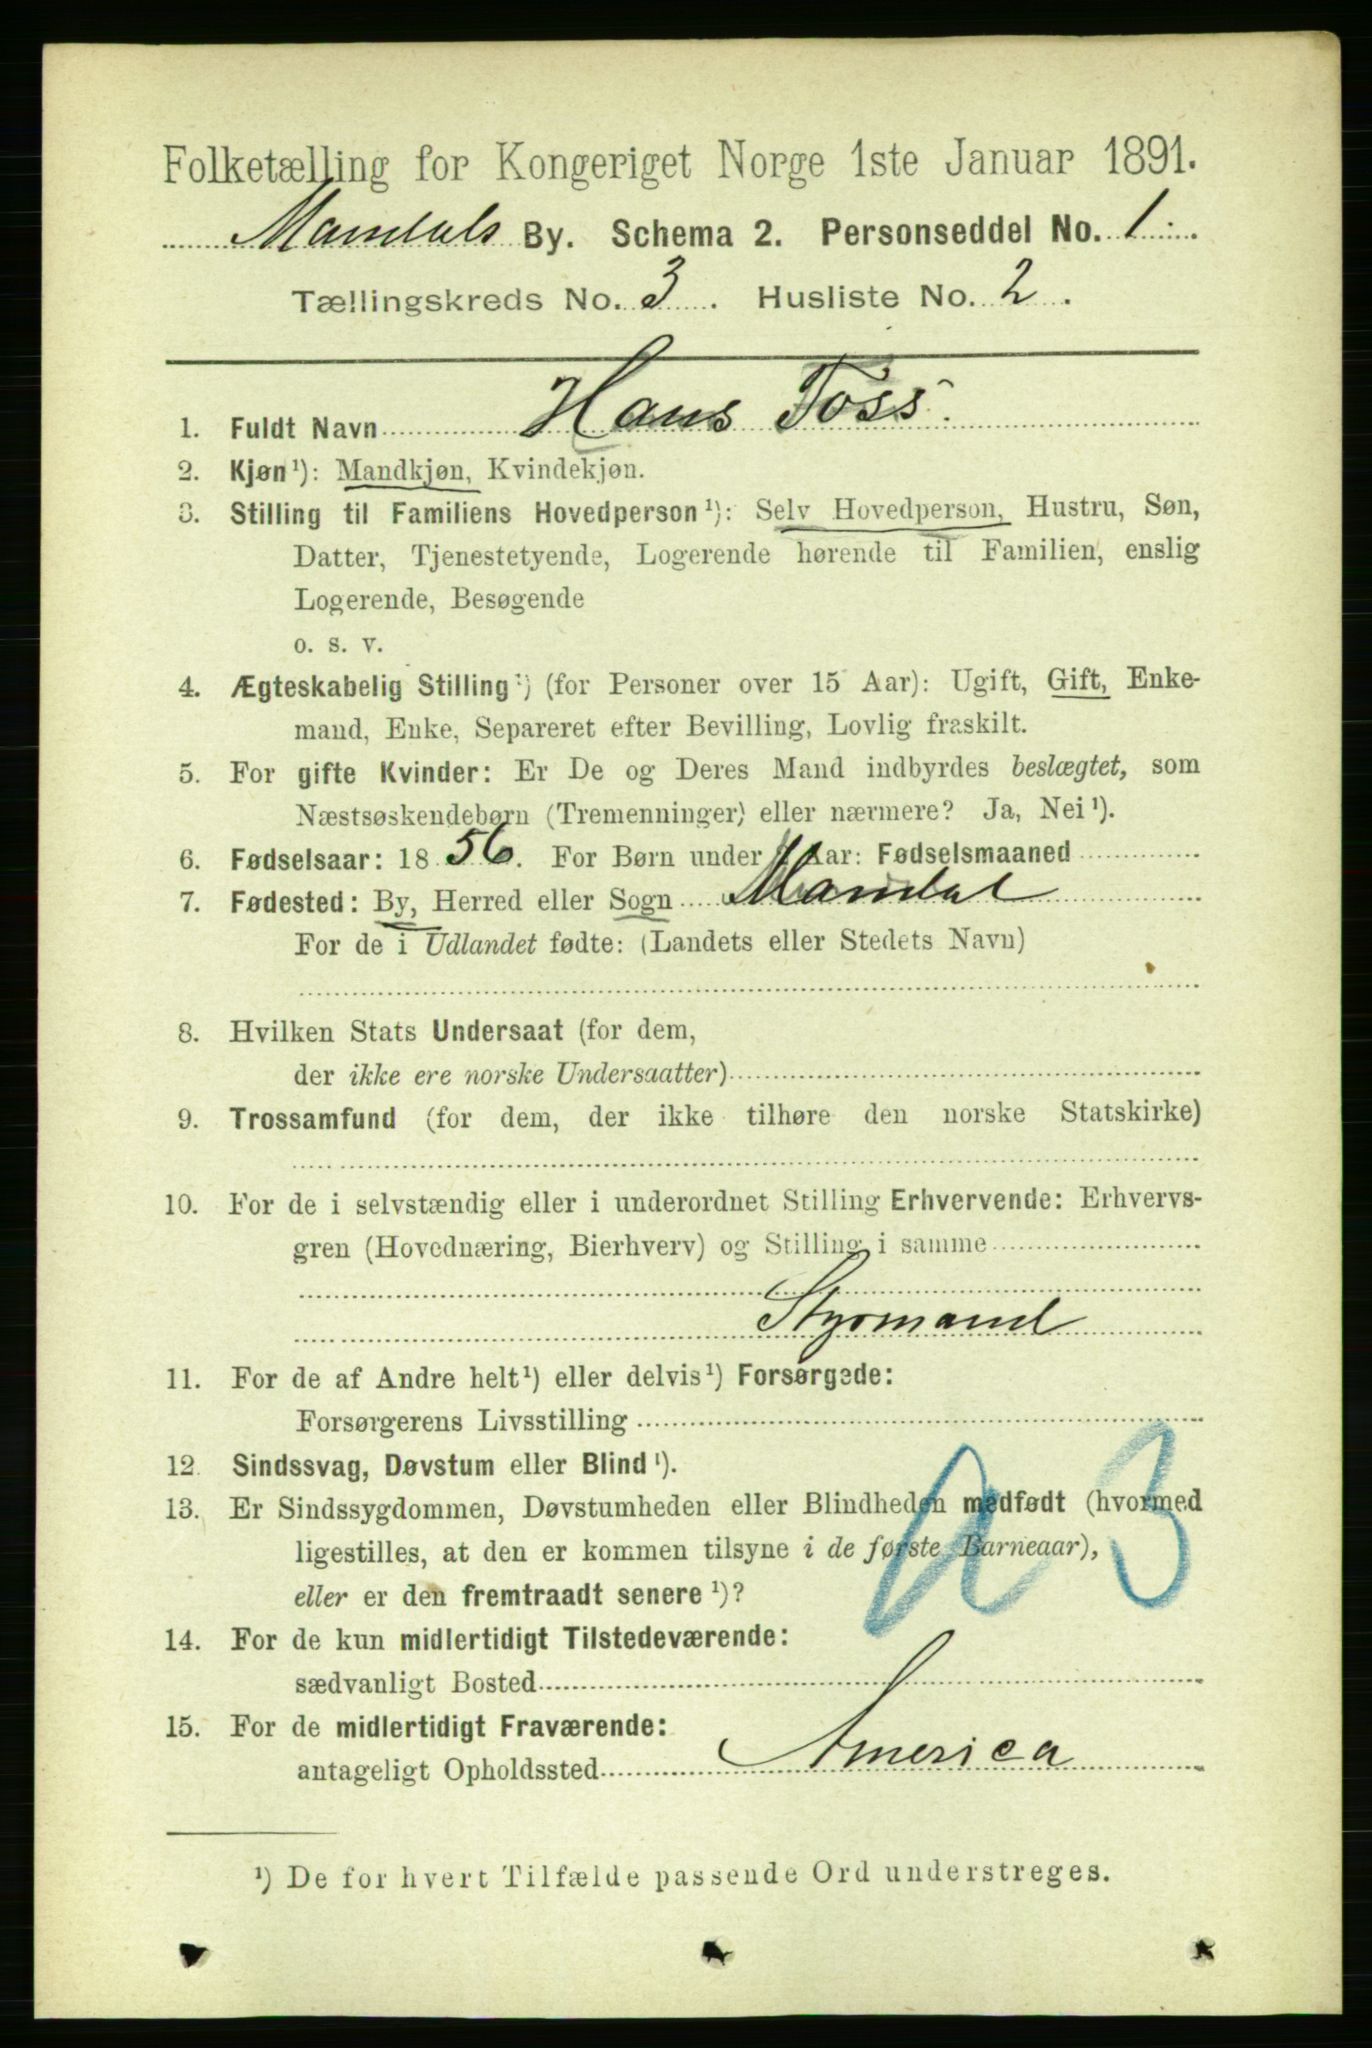 Folketælling for Kongeriget Norge 1ste Januar 1891.
Mandals By. Schema 2. Personseddel No. 1.
Tællingskreds No. 3. Husliste No. 2.
1. Fuldt Navn Hans Foss.
2. Kjøn ¹): Mandkjøn, Kvindekjøn.
3. Stilling til Familiens Hovedperson ¹): Selv Hovedperson, Hustru, Søn,
Datter, Tjenestetyende, Logerende hørende til Familien, enslig
Logerende, Besøgende
o. s. v.
4. Ægteskabelig Stilling ¹) (for Personer over 15 Aar): Ugift, Gift, Enke-
mand, Enke, Separeret efter Bevilling, Lovlig fraskilt.
5. For gifte Kvinder: Er De og Deres Mand indbyrdes beslægtet, som
Næstsøskendebørn (Tremenninger) eller nærmere? Ja, Nei ¹).
6. Fødselsaar: 18 56. For Børn under Aar: Fødselsmaaned
7. Fødested: By, Herred eller Sogn Mandal
For de i Udlandet fødte: (Landets eller Stedets Navn)
8. Hvilken Stats Undersaat (for dem,
der ikke ere norske Undersaatter)
9. Trossamfund (for dem, der ikke tilhøre den norske Statskirke)
10. For de i selvstændig eller i underordnet Stilling Erhvervende: Erhvervs-
gren (Hovednæring, Bierhverv) og Stilling i samme
Styrmand
11. For de af Andre helt ¹) eller delvis ¹) Forsørgede:
Forsørgerens Livsstilling
12. Sindssvag, Døvstum eller Blind ¹).
13. Er Sindssygdommen, Døvstumheden eller Blindheden medfødt (hvormed
ligestilles, at den er kommen tilsyne i de første Barneaar),
eller er den fremtraadt senere ¹)?
14. For de kun midlertidigt Tilstedeværende:
sædvanligt Bosted
15. For de midlertidigt Fraværende:
antageligt Opholdssted America
¹) De for hvert Tilfælde passende Ord understreges.